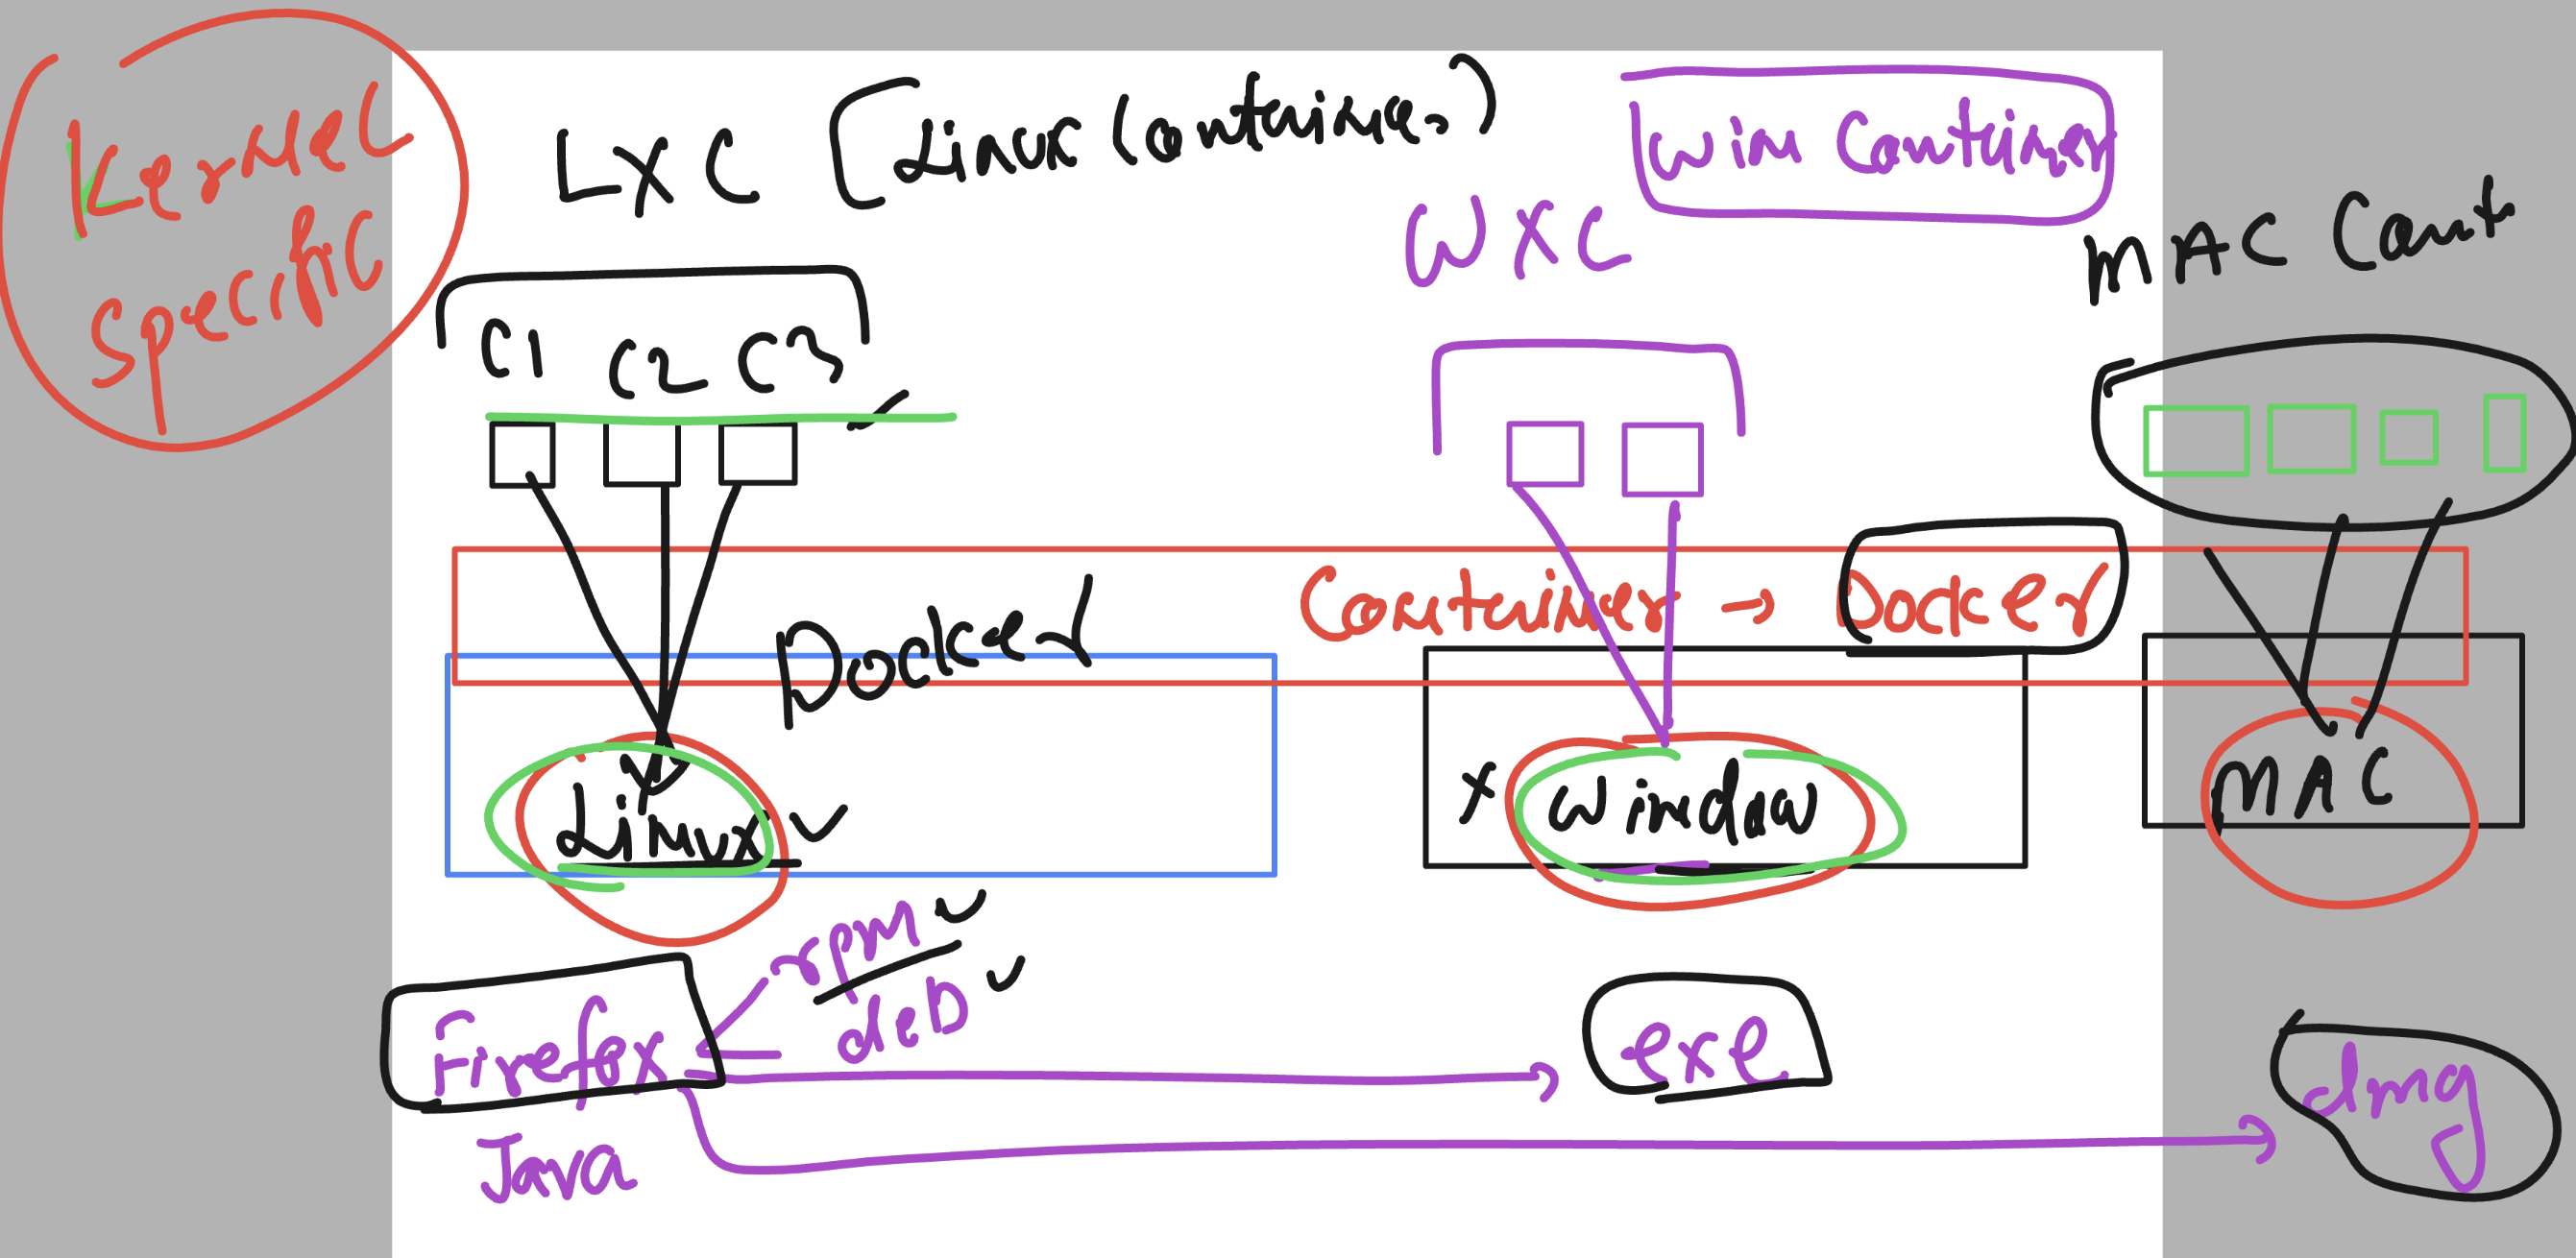 Kernel
Specific
LXC (Linux Containers)
Win Container
WXC
MAC Cont
C1 C2 C3
Container → Docker
Docker
Linux
X Window
MAC
rpm
deb
Firefox
exe
dmg
Java